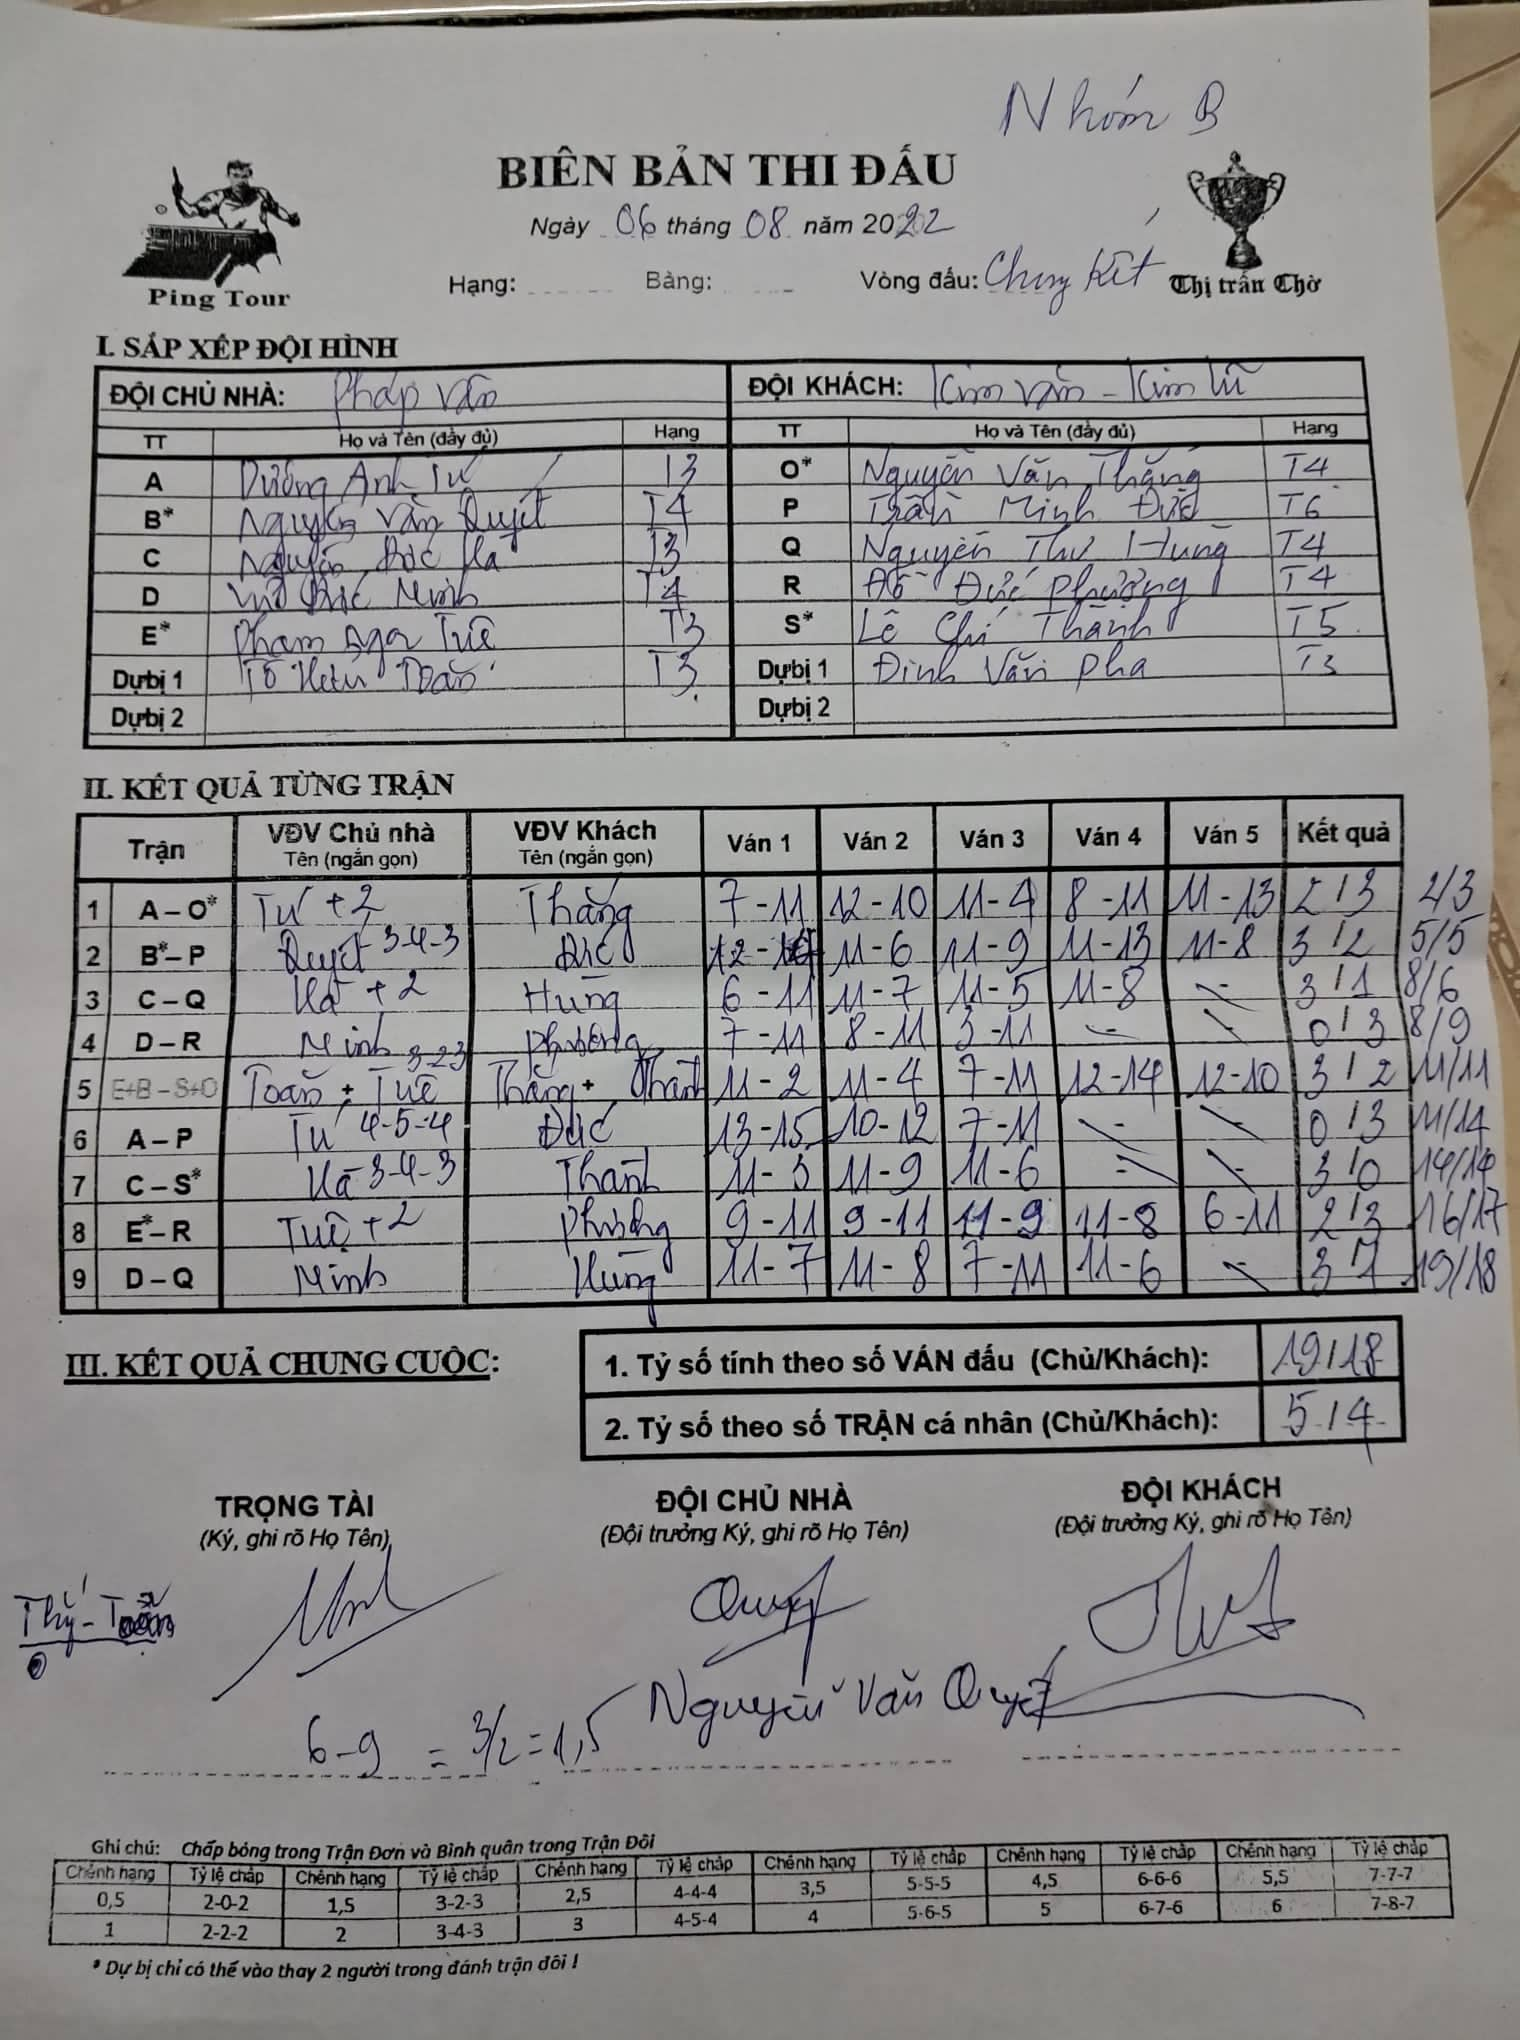 Nhóm B
BIÊN BẢN THI ĐẤU
Ngày 06 tháng 08 năm 2022
Hạng: Bảng: Vòng đấu: Chung kết
Ping Tour
Thị trấn Chờ
I. SẮP XẾP ĐỘI HÌNH
ĐỘI CHỦ NHÀ: Pháp Vân ĐỘI KHÁCH: Kim Văn - Kim Lũ
TT Họ và Tên (đầy đủ) Hạng TT Họ và Tên (đầy đủ) Hạng
A Dương Anh Tú T3 O* Nguyễn Văn Thắng T4
B* Nguyễn Văn Quyết T4 P Trần Minh Đức T6
C Nguyễn Đắc Hà T3 Q Nguyễn Thư Hùng T4
D Vũ Đức Minh T4 R Đỗ Đức Phương T4
E* Phạm Nga Tuê T3 S* Lê Chí Thành T5
Dự bị 1 Tô Hữu Toàn T3 Dự bị 1 Đinh Văn Pha T3
Dự bị 2 Dự bị 2
II. KẾT QUẢ TỪNG TRẬN
Trận VĐV Chủ nhà Tên (ngắn gọn) VĐV Khách Tên (ngắn gọn) Ván 1 Ván 2 Ván 3 Ván 4 Ván 5 Kết quả
1 A – O* Tú +2 Thắng 7-11 12-10 11-4 8-11 11-13 2/3 2/3
2 B* – P Quyết 3-4-3 Đức 12-14 11-6 11-9 11-13 11-8 3/2 5/5
3 C – Q Hà +2 Hùng 6-11 11-7 11-5 11-8 - 3/1 8/6
4 D – R Minh Phương 7-11 8-11 3-11 - - 0/3 8/9
5 E+B – S+O Toàn + Tuê 3-2-3 Thắng + Thành 11-2 11-4 7-11 12-14 12-10 3/2 11/11
6 A – P Tú 4-5-4 Đức 13-15 10-12 7-11 - - 0/3 11/14
7 C – S* Hà 3-4-3 Thành 11-3 11-9 11-6 - - 3/0 14/14
8 E* – R Tuê +2 Phương 9-11 9-11 11-9 11-8 6-11 2/3 16/17
9 D – Q Minh Hùng 11-7 11-8 7-11 11-6 - 3/1 19/18
III. KẾT QUẢ CHUNG CUỘC:
1. Tỷ số tính theo số VÁN đấu (Chủ/Khách): 19/18
2. Tỷ số theo số TRẬN cá nhân (Chủ/Khách): 5/4
TRỌNG TÀI ĐỘI CHỦ NHÀ ĐỘI KHÁCH
(Ký, ghi rõ Họ Tên) (Đội trưởng Ký, ghi rõ Họ Tên) (Đội trưởng Ký, ghi rõ Họ Tên)
Quyết
Nguyễn Văn Quyết
6-9 = 3/2 = 1,5
Ghi chú: Chấp bóng trong Trận Đơn và Bình quân trong Trận Đôi
Chênh hạng Tỷ lệ chấp Chênh hạng Tỷ lệ chấp Chênh hạng Tỷ lệ chấp Chênh hạng Tỷ lệ chấp Chênh hạng Tỷ lệ chấp Chênh hạng Tỷ lệ chấp
0,5 2-0-2 1,5 3-2-3 2,5 4-4-4 3,5 5-5-5 4,5 6-6-6 5,5 7-7-7
1 2-2-2 2 3-4-3 3 4-5-4 4 5-6-5 5 6-7-6 6 7-8-7
* Dự bị chỉ có thể vào thay 2 người trong đánh trận đôi !